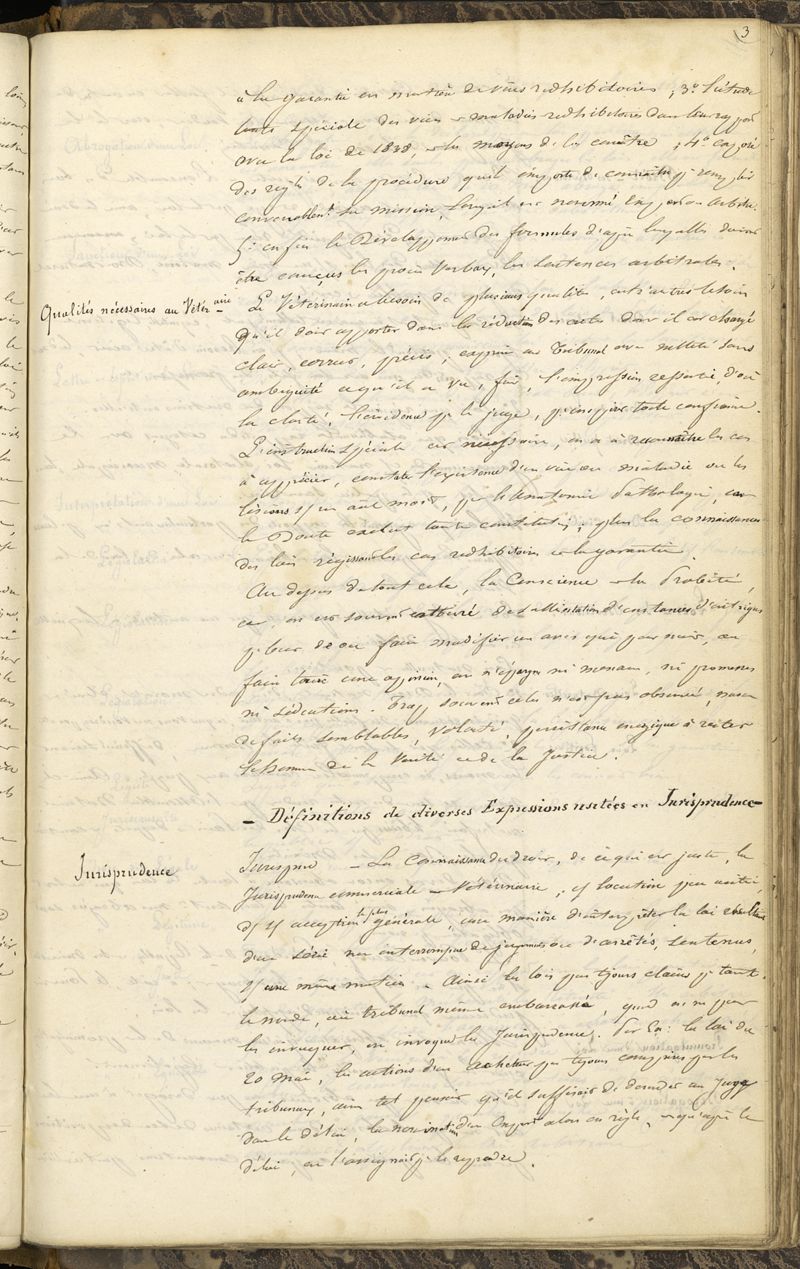 3
à la garantie en matière de vices redhibitoires ; 3° l'étude
toute spéciale des vices et maladies redhibitoires dans leur rapport
avec la loi de 1838, et les moyens de les connaître ; 4°
des règles de la procédure qu'il importe de connaître pr remplir
convenablemt sa mission, lorsqu'il est nommé Expert ou arbitre.
5° enfin le Développement des formules d'après lesquelles doivent
être conçus les procès verbaux, les Sentences arbitrales.
Qualités nécessaires au Vétérinaire
Le Vétérinaire a besoin de plusieurs qualités, entr'autres le soin
qu'il doit apporter dans la rédaction des actes dont il est chargé
clair, correct, précis, exprimer au Tribunal avec netteté sans
ambiguité ce qu'il a vu, fait, l'impression ressentie, d'où
la clarté, l'évidence pr le juge, pr inspirer toute confiance.
L'instruction spéciale est nécessaire, on a à reconnaître les cas
à apprécier, constater l'existence d'un vice ou maladie ou les
lésions sur un aml mort, par l'anatomie Pathologique, car
le Doute exclut toute ; plus la connaissance
des lois régissant les cas redhibitoires et la garantie.
Au dessus de tout cela, la Conscience et la Probité,
car on est souvent entouré de sollicitations d'instances d'intrigues
pr leur de ou faire modifier un avis qui peut nuire, ou
faire taire une opinion, on n'épargne ni menaces, ni promesses
ni séductions. Trop souvent cela n'est pas observé,
de faits semblables, volonté, persistance énergique à rester
l'homme de la Vérité et de la Justice.
- Définitions de diverses Expressions usitées en Jurisprudence -
Jurisprudence
Jurispce - La Connaissance du droit, de ce qui est juste, la
Jurisprudence commerciale - Vétérinaire, locution peu usitée,
ds son acception la plus générale, une manière d'interpréter la loi résultant
d'une série non interrompue de jugements ou d'arrêtés, sentences,
sur une même matière. Ainsi les lois pas tjours claires pr tout
le monde, un tribunal même embarrassé, quand on ne peut
les invoquer, on invoque la Jurisprudence. Par Ex: la loi du
20 mai, les actions d'un acheteur pas toujours comprises par les
tribunaux, ainsi tel pensait qu'il suffisait de demander au Juge
dans le délai, la nomination d'un Expert alors en règle, et qu'après le
délai, on l'assignait pr le reprendre.